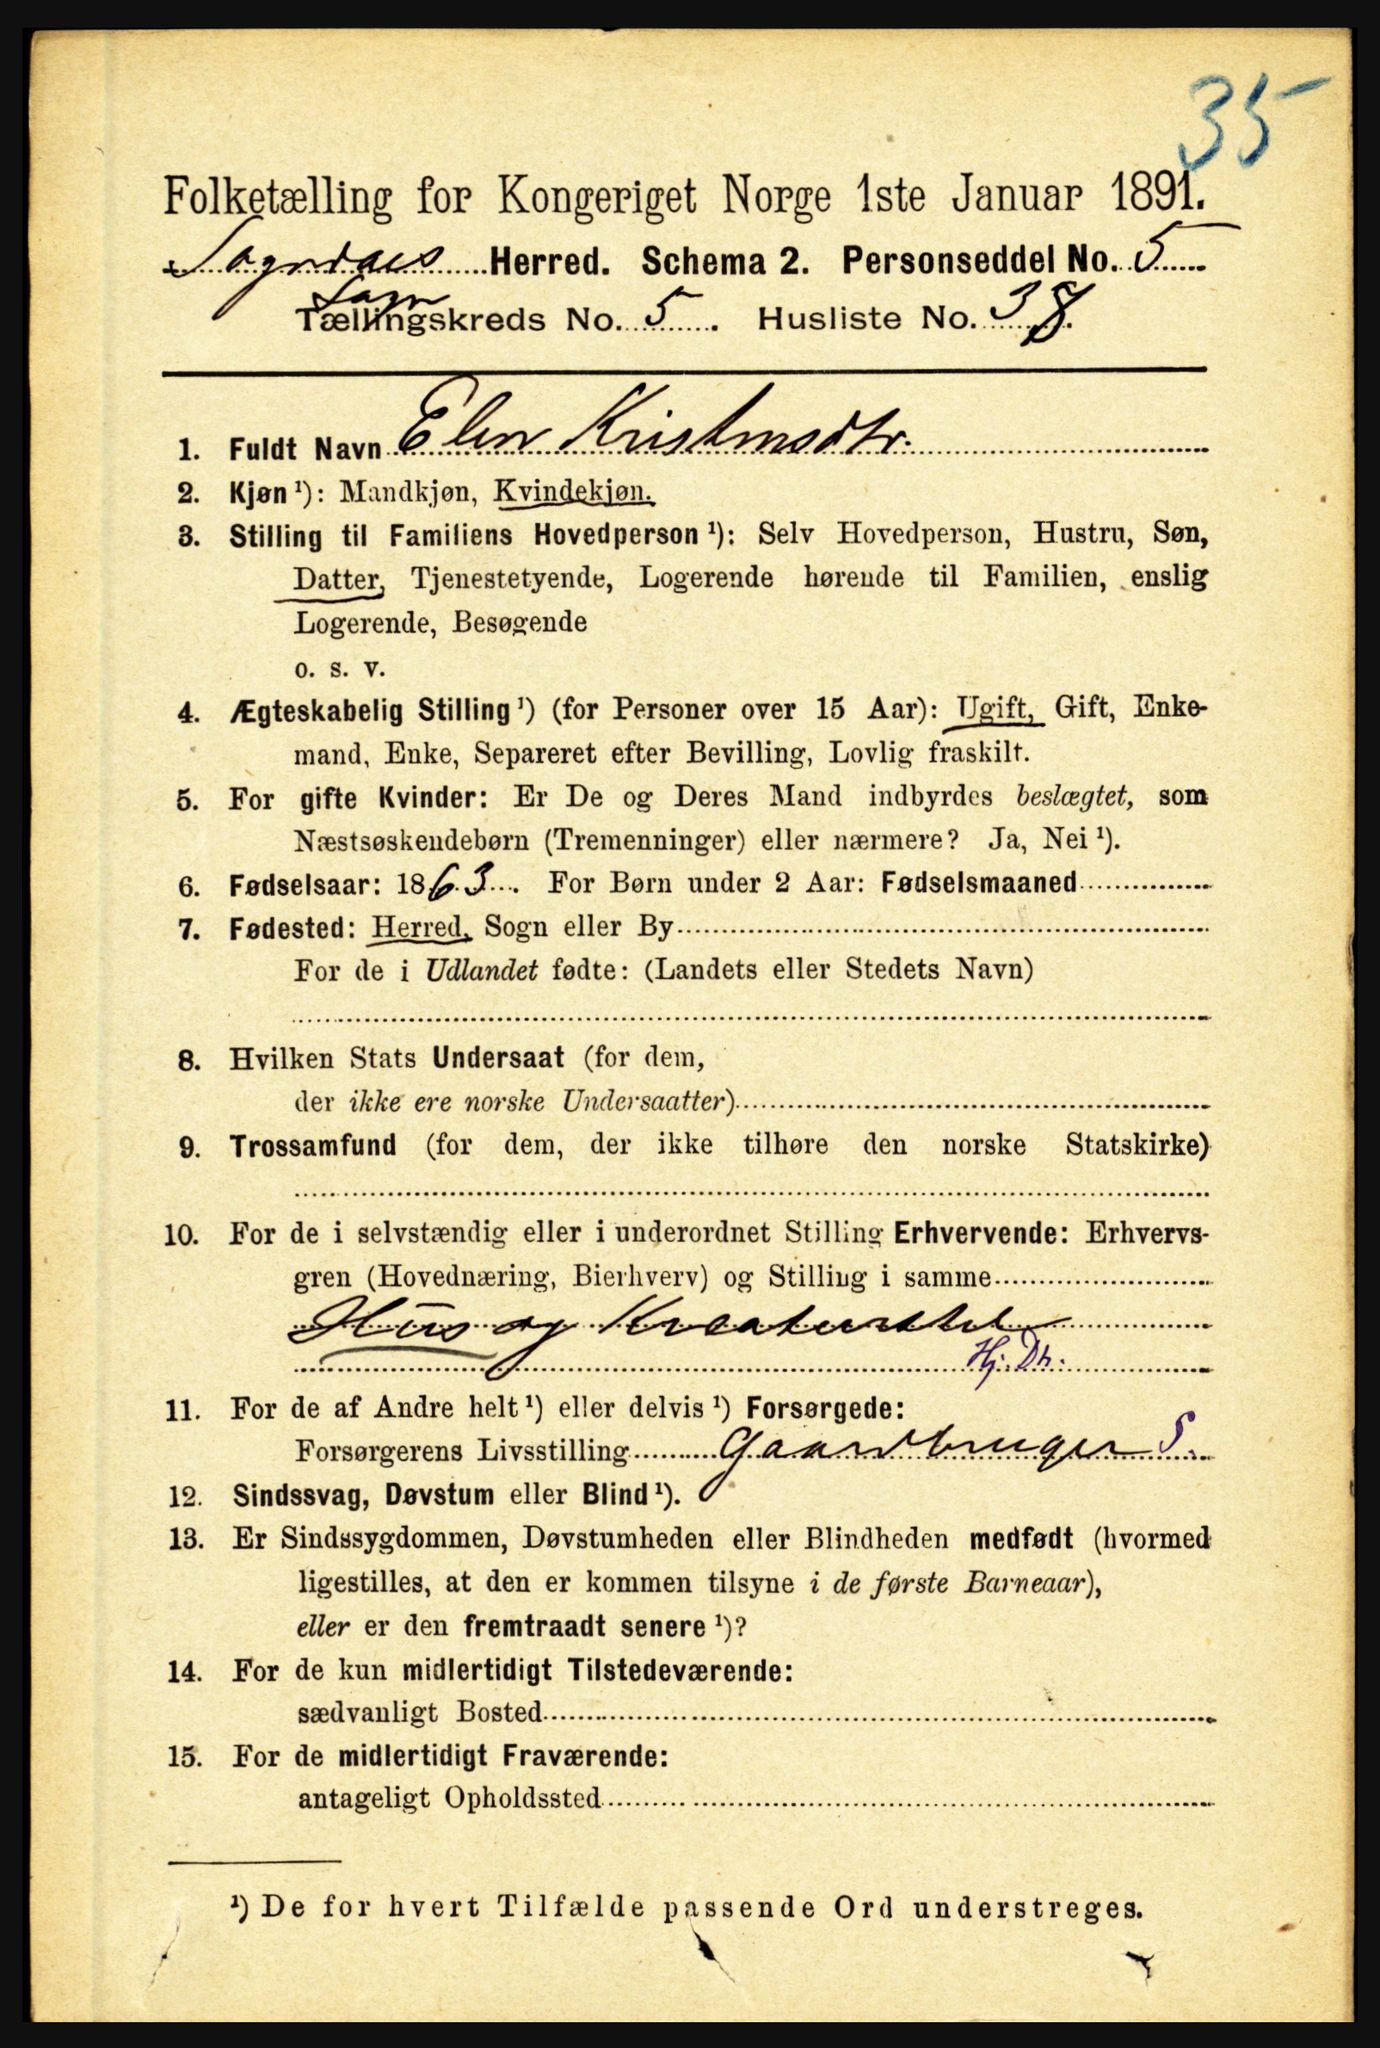 35
Folketælling for Kongeriget Norge 1ste Januar 1891.
Sogndals Herred. Schema 2. Personseddel No. 5
Tællingskreds No. 5. Husliste No. 38.
1. Fuldt Navn Elen Kristensdtr.
2. Kjøn ¹): Mandkjøn, Kvindekjøn.
3. Stilling til Familiens Hovedperson ¹): Selv Hovedperson, Hustru, Søn,
Datter, Tjenestetyende, Logerende hørende til Familien, enslig
Logerende, Besøgende
o. s. v.
4. Ægteskabelig Stilling ¹) (for Personer over 15 Aar): Ugift, Gift, Enke-
mand, Enke, Separeret efter Bevilling, Lovlig fraskilt.
5. For gifte Kvinder: Er De og Deres Mand indbyrdes beslægtet, som
Næstsøskendebørn (Tremenninger) eller nærmere? Ja, Nei ¹).
6. Fødselsaar: 1863. For Børn under 2 Aar: Fødselsmaaned
7. Fødested: Herred, Sogn eller By
For de i Udlandet fødte: (Landets eller Stedets Navn)
8. Hvilken Stats Undersaat (for dem,
der ikke ere norske Undersaatter)
9. Trossamfund (for dem, der ikke tilhøre den norske Statskirke)
10. For de i selvstændig eller i underordnet Stilling Erhvervende: Erhvervs-
gren (Hovednæring, Bierhverv) og Stilling i samme
Hus og Kreaturstel
Hj. Dtr.
11. For de af Andre helt ¹) eller delvis ¹) Forsørgede:
Forsørgerens Livsstilling Gaardbruger S.
12. Sindssvag, Døvstum eller Blind ¹).
13. Er Sindssygdommen, Døvstumheden eller Blindheden medfødt (hvormed
ligestilles, at den er kommen tilsyne i de første Barneaar),
eller er den fremtraadt senere ¹)?
14. For de kun midlertidigt Tilstedeværende:
sædvanligt Bosted
15. For de midlertidigt Fraværende:
antageligt Opholdssted
¹) De for hvert Tilfælde passende Ord understreges.